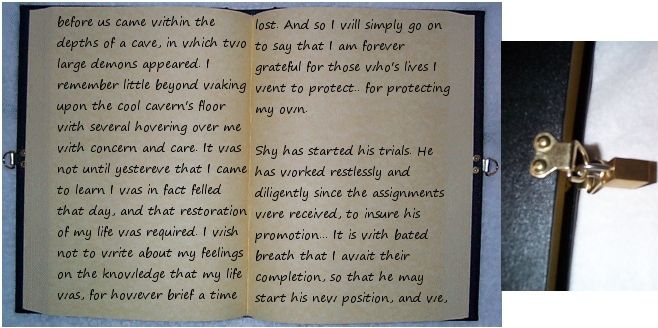 before us came within the
depths of a cave, in which two
large demons appeared. I
remember little beyond waking
upon the cool cavern's floor
with several hovering over me
with concern and care. It was
not until yestereve that I came
to learn I was in fact felled
that day, and that restoration
of my life was required. I wish
not to write about my feelings
on the knowledge that my life
was, for however brief a time
lost. And so I will simply go on
to say that I am forever
grateful for those who's lives I
went to protect.. for protecting
my own.
Shy has started his trials. He
has worked restlessly and
diligently since the assignments
were received, to insure his
promotion... It is with bated
breath that I await their
completion, so that he may
start his new position, and we,